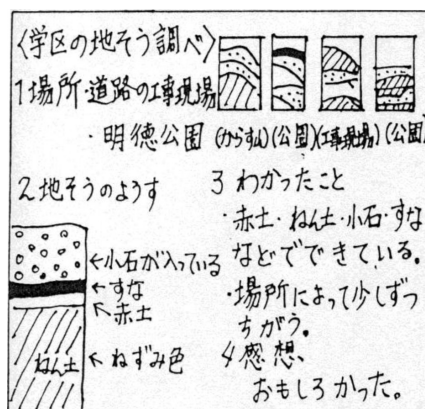 〈学区の地そう調べ〉
1場所・道路の工事現場
・明徳公園
(からすん)(公園)(工事現場)(公園)
2地そうのようす
←小石が入っている
←すな
↖赤土
ねん土
↖ねずみ色
3 わかったこと
・赤土・ねん土・小石・すな
などでできている。
・場所によって少しずつ
ちがう。
4感想
おもしろかった。